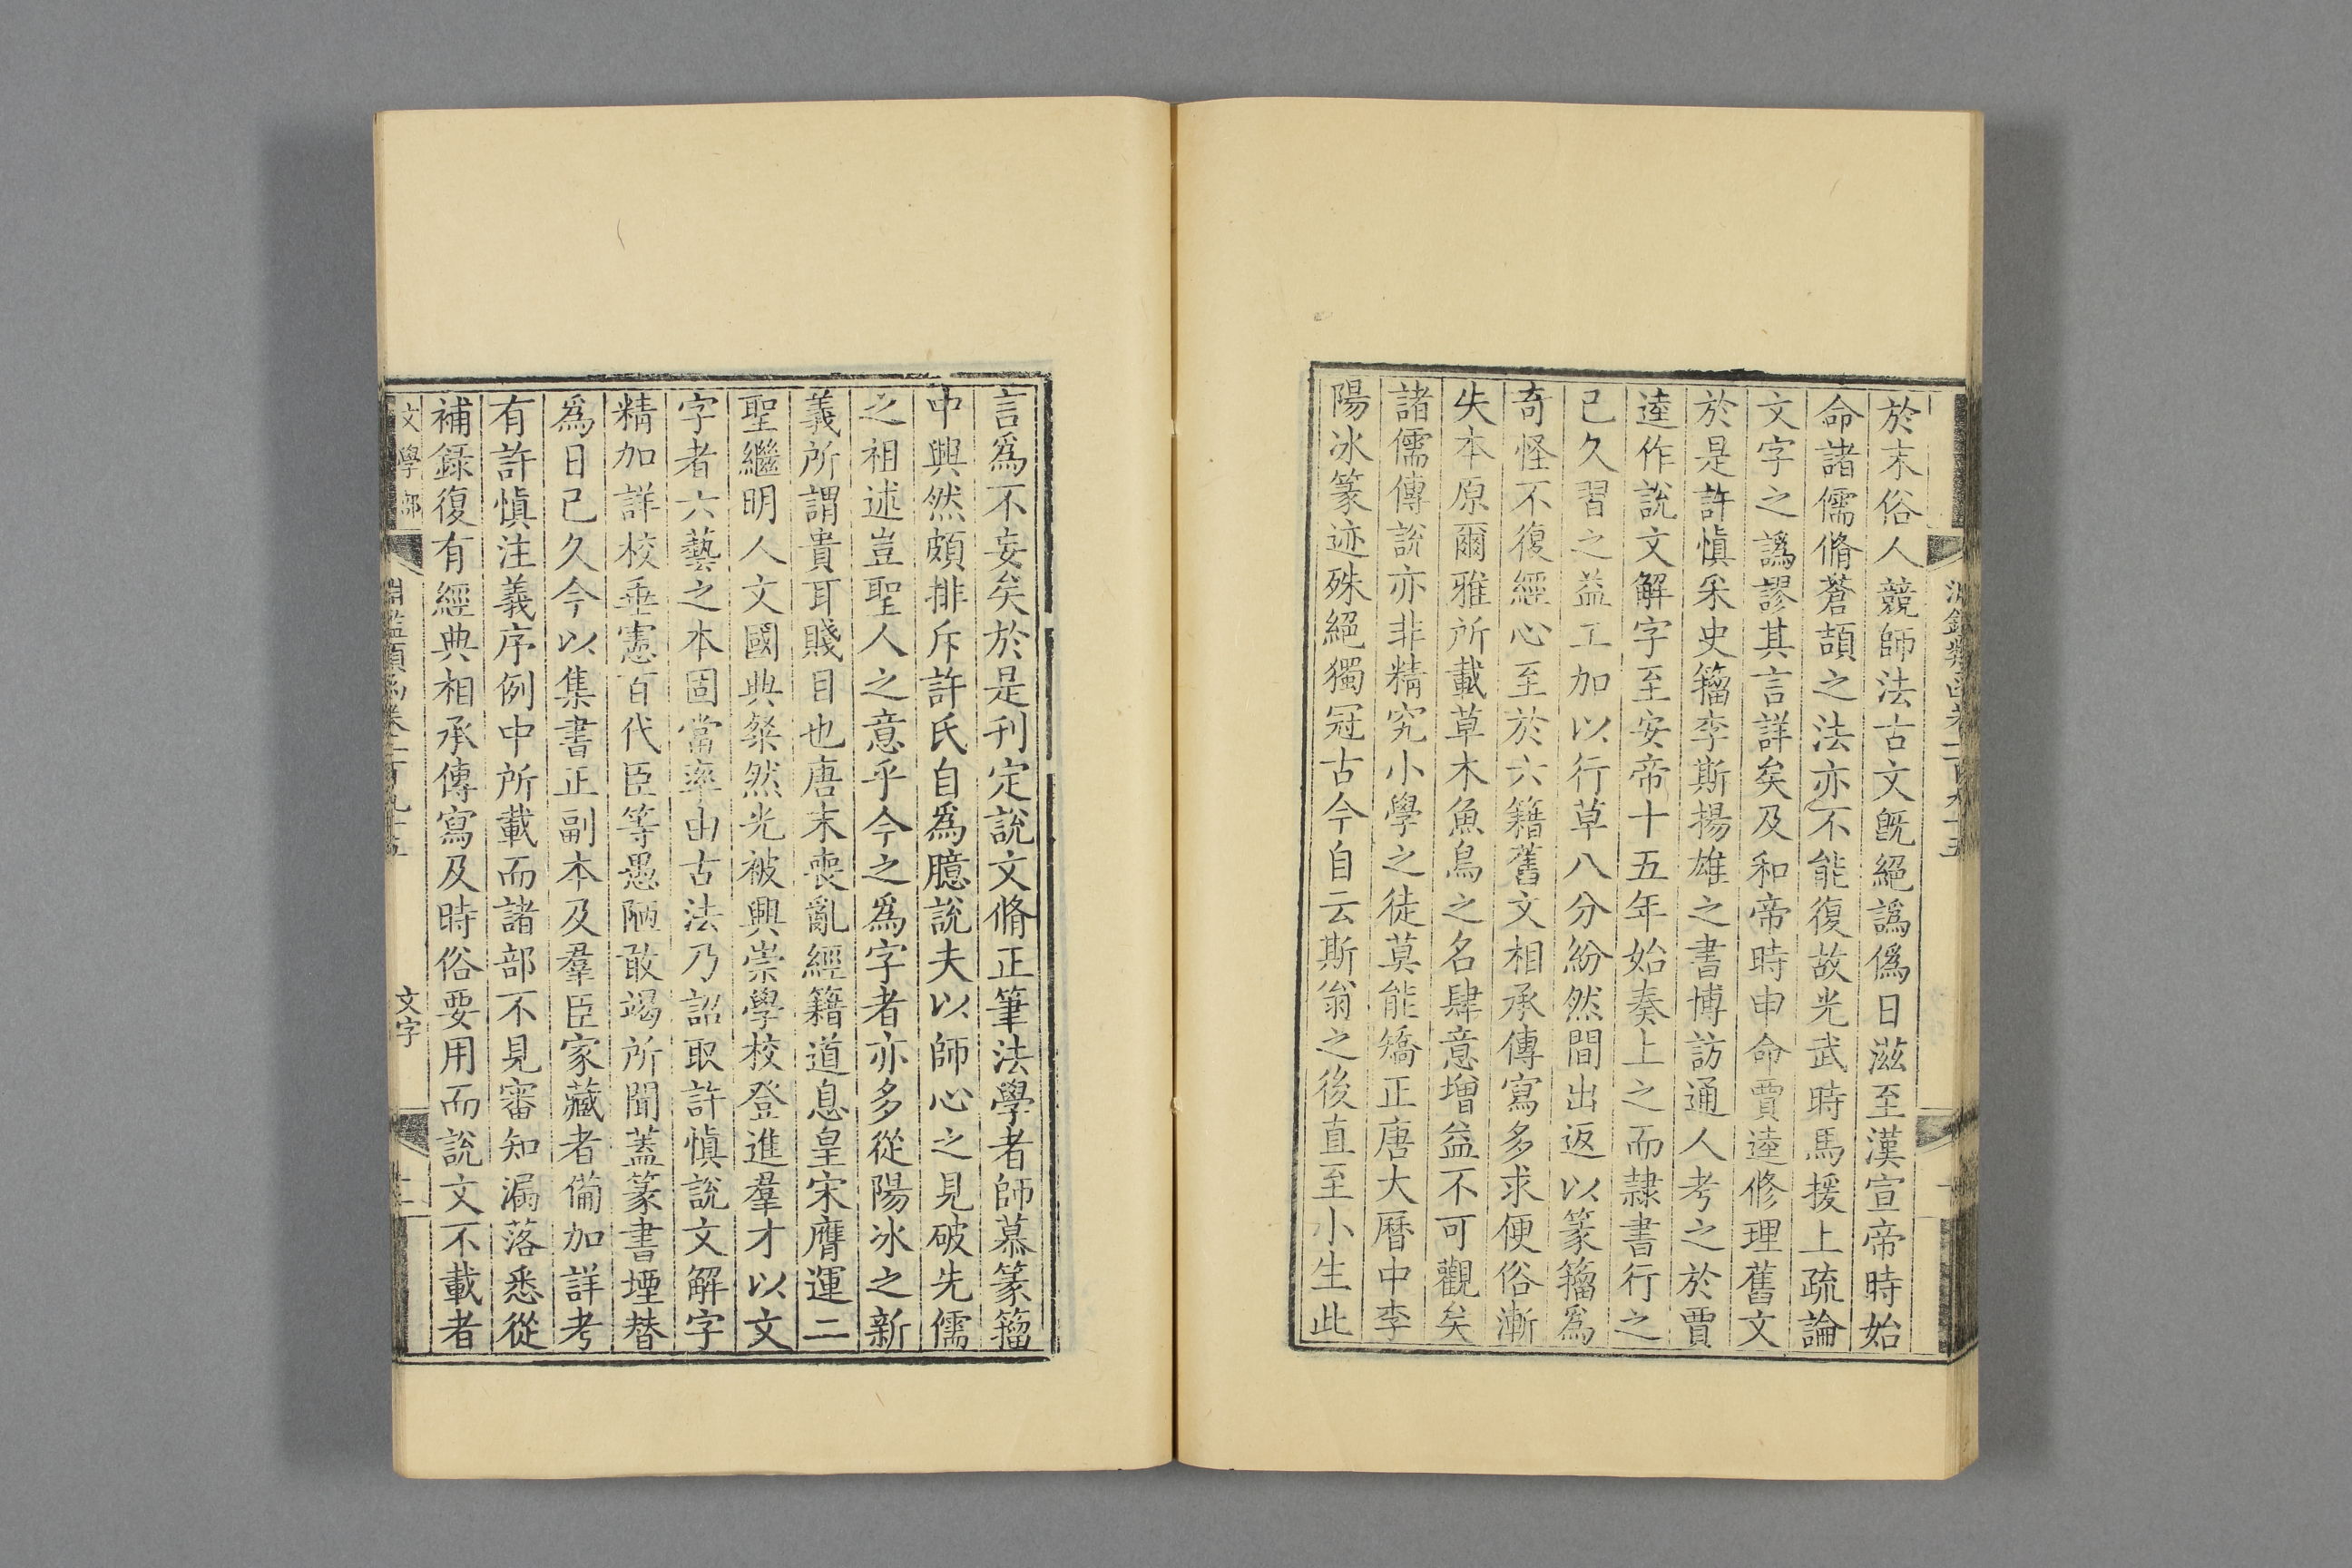 淵鑑類函卷一百九十五
於末俗人競師法古文旣絕譌僞日滋至漢宣帝時始
命諸儒脩蒼頡之法亦不能復故光武時馬援上疏論
文字之譌謬其言詳矣及和帝時申命賈逵修理舊文
於是許愼采史籀李斯揚雄之書博訪通人考之於賈
逵作說文解字至安帝十五年始奏上之而隸書行之
已久習之益工加以行草八分紛然間出返以篆籀爲
奇怪不復經心至於六籍舊文相承傳寫多求便俗漸
失本原爾雅所載草木魚鳥之名肆意增益不可觀矣
諸儒傳說亦非精究小學之徒莫能矯正唐大曆中李
陽冰篆迹殊絕獨冠古今自云斯翁之後直至小生此
言爲不妄矣於是刊定說文脩正筆法學者師慕篆籀
中興然頗排斥許氏自爲臆說夫以師心之見破先儒
之祖述豈聖人之意乎今之爲字者亦多從陽冰之新
義所謂貴耳賤目也唐末喪亂經籍道息皇宋膺運二
聖繼明人文國典粲然光被興崇學校登進羣才以文
字者六藝之本固當率由古法乃詔取許愼說文解字
精加詳校垂憲百代臣等愚陋敢竭所聞蓋篆書堙替
爲日已久今以集書正副本及羣臣家藏者備加詳考
有許愼注義序例中所載而諸部不見審知漏落悉從
補錄復有經典相承傳寫及時俗要用而說文不載者
文學部 淵鑑類函卷一百九十五 文字 二